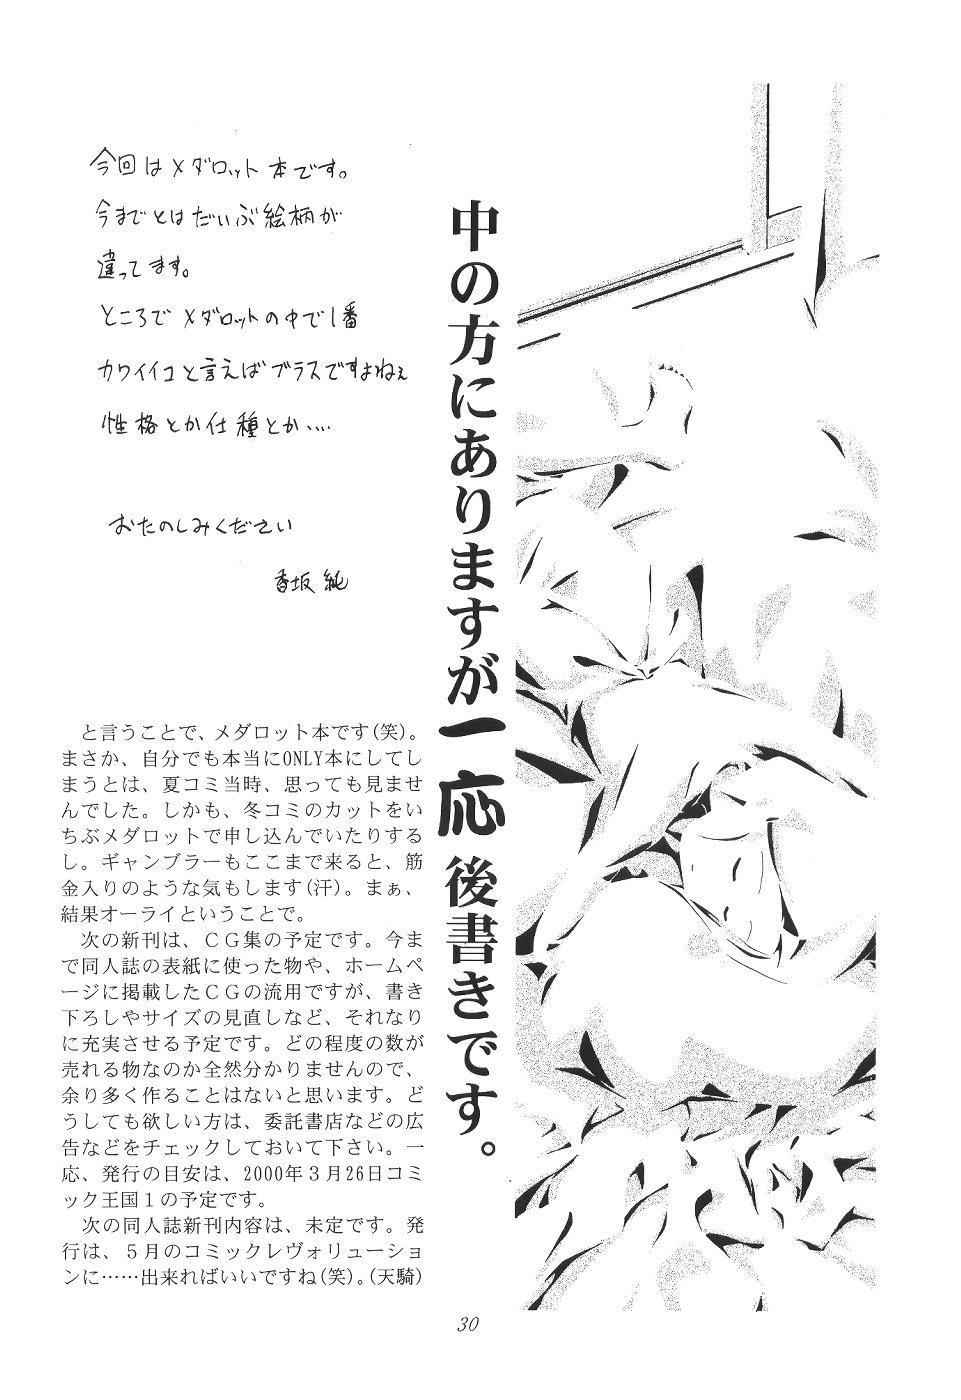 今回はメダロット本です。
今までとはだいぶ絵柄が
違ってます。
ところでメダロットの中で1番
カワイイコと言えばブラスですよねぇ
性格とか仕種とか‥‥
おたのしみください
香坂 純
中の方にありますが一応後書きです。
と言うことで、メダロット本です(笑)。
まさか、自分でも本当にONLY本にしてし
まうとは、夏コミ当時、思っても見ませ
んでした。しかも、冬コミのカットをい
ちぶメダロットで申し込んでいたりする
し。ギャンブラーもここまで来ると、筋
金入りのような気もします(汗)。まぁ、
結果オーライということで。
次の新刊は、ＣＧ集の予定です。今ま
で同人誌の表紙に使った物や、ホームペ
ージに掲載したＣＧの流用ですが、書き
下ろしやサイズの見直しなど、それなり
に充実させる予定です。どの程度の数が
売れる物なのか全然分かりませんので、
余り多く作ることはないと思います。ど
うしても欲しい方は、委託書店などの広
告などをチェックしておいて下さい。一
応、発行の目安は、2000年３月26日コミ
ック王国１の予定です。
次の同人誌新刊内容は、未定です。発
行は、５月のコミックレヴォリューショ
ンに……出来ればいいですね(笑)。(天騎)
30